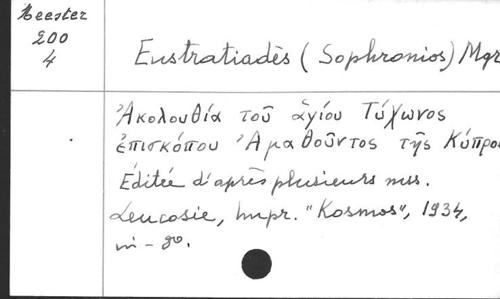 Meester
200
4
Eustratiadès (Sophronios) Mgr
Ἀκολουθία τοῦ ἁγίου Τύχωνος
ἐπισκόπου Ἀμαθοῦντος τῆς Κύπρου
Éditée d'après plusieurs mss.
Leucosie, Impr. "Kosmos", 1934,
in-8º.